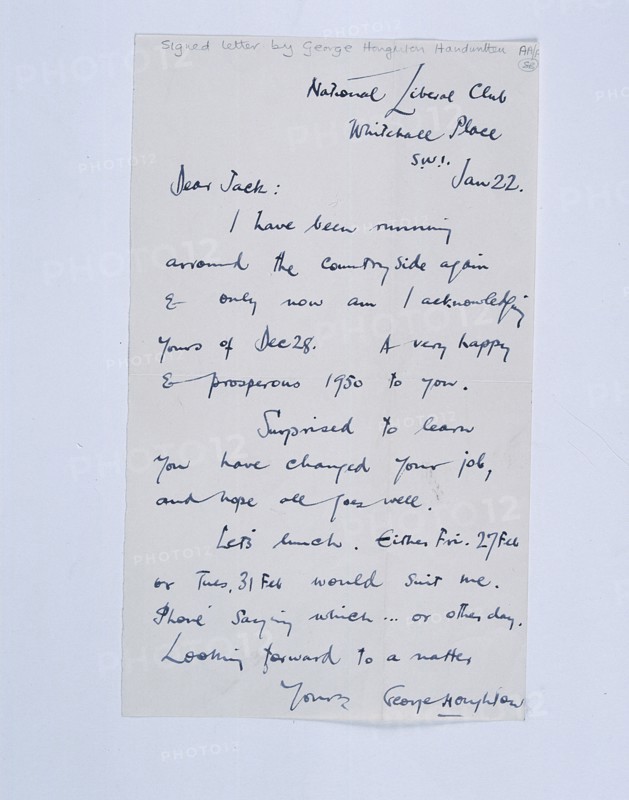 Signed letter by George Houghton Handwritten
National Liberal Club
Whitehall Place
S.W.1.
Jan 22.
Dear Jack:
I have been running
arround the Countryside again
& only now am I acknowledging
yours of Dec 28. A very happy
& prosperous 1950 to you.
Surprised to learn
you have changed your job,
and hope all goes well.
Let's lunch. Either Fri. 27 Feb
or Tues, 31 Feb would suit me.
Phone saying which ... or other day.
Looking forward to a natter
Yours George Houghton
PHOTO12